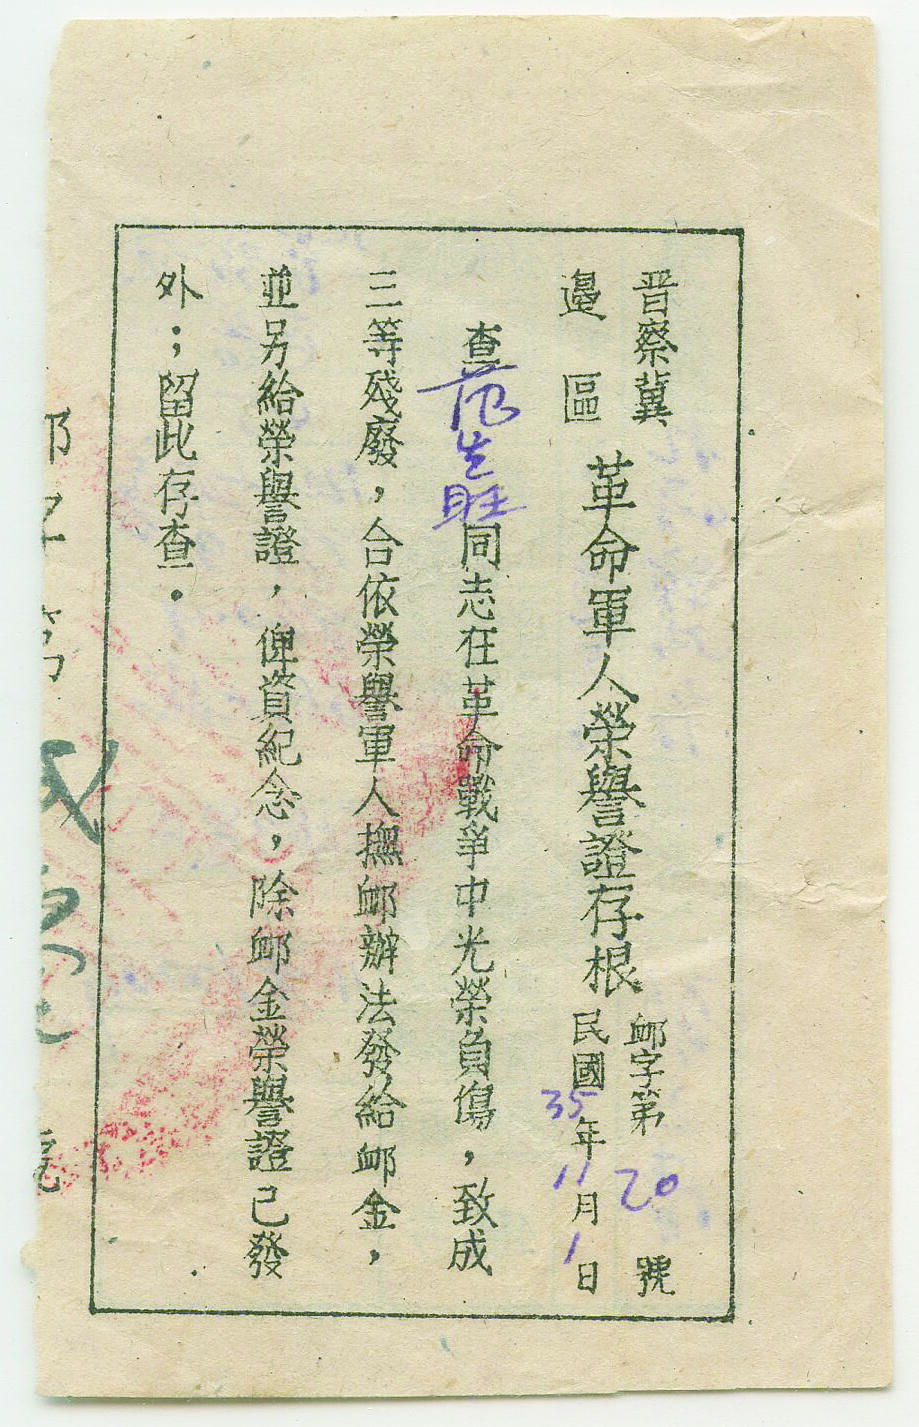 晋察冀
邊區
革命軍人榮譽證存根
卹字第20號
民國35年11月1日
查范生旺同志在革命戰爭中光榮負傷，致成
三等殘廢，合依榮譽軍人撫卹辦法發給卹金，
並另給榮譽證，俾資紀念，除卹金榮譽證已發
外；留此存查．